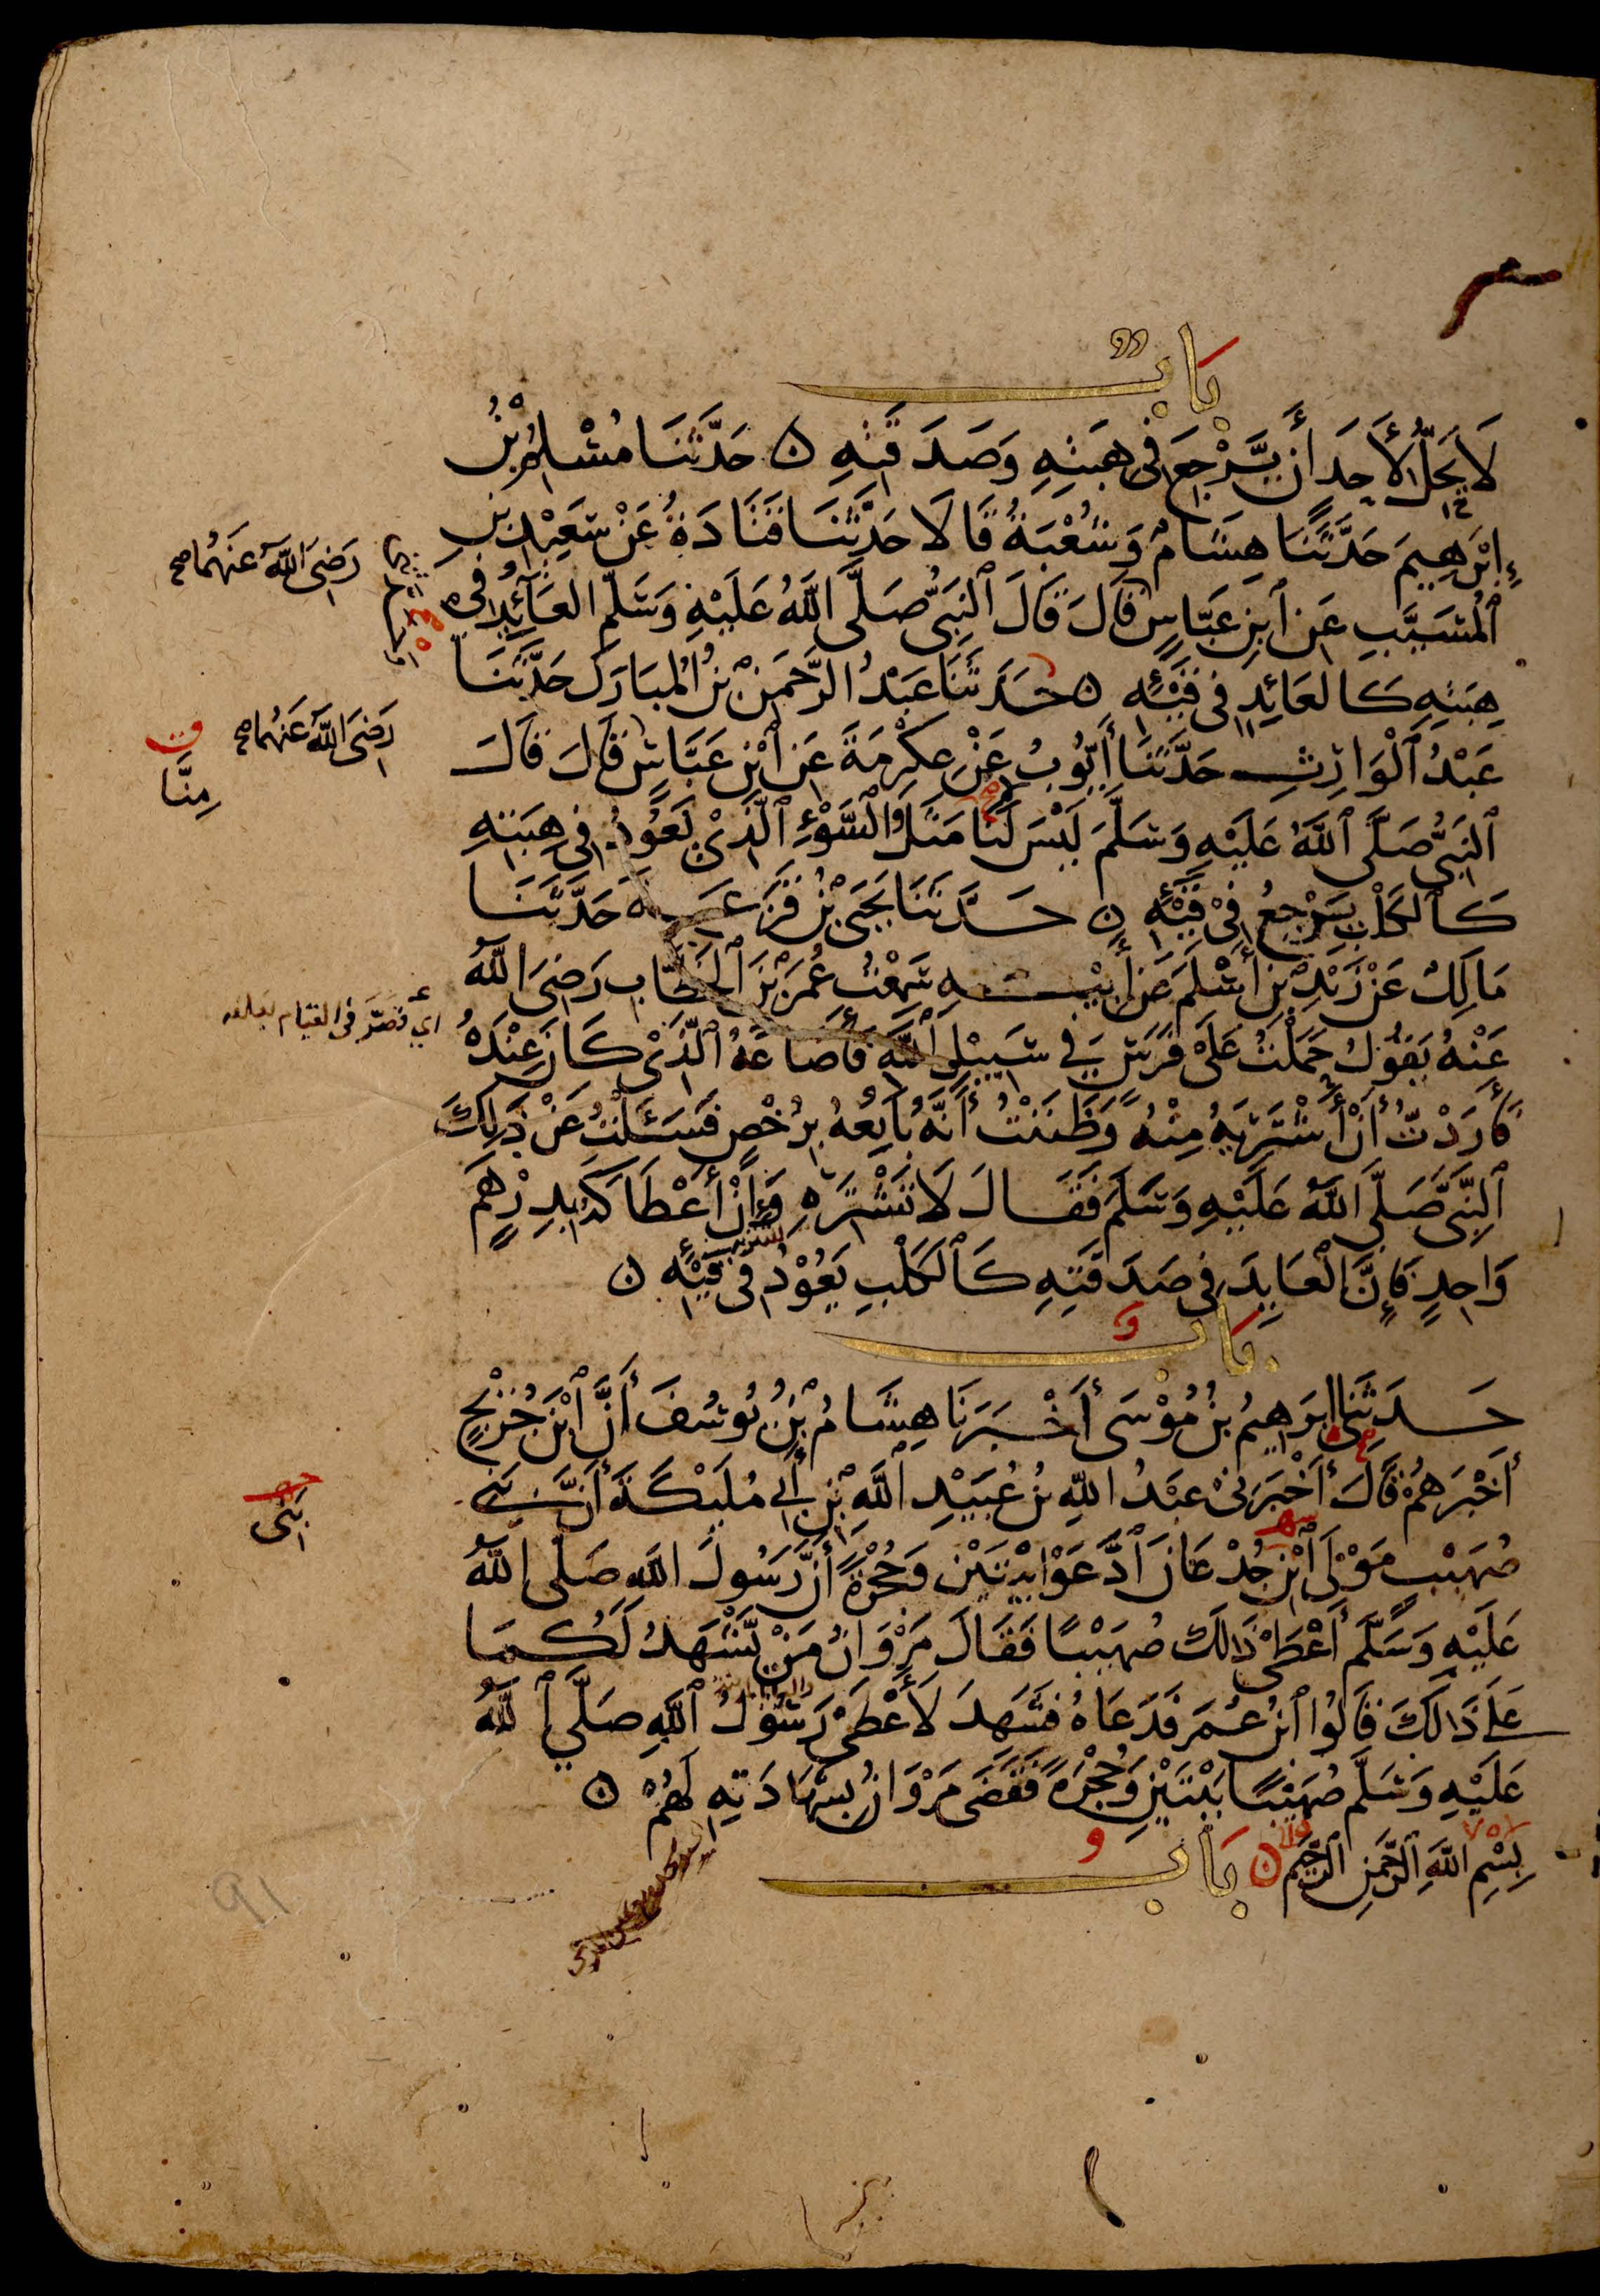 بَابٌ
لَا يَحِلُّ لِأَحَدٍ أَن يَّرْجِعَ فِي هِبَتِهِ وَصَدَقَتِهِ ۝ حَدَّثَنَا مُسْلِمُ بْنُ
إِبْرٰهِيمَ حَدَّثَنَا هِشَامٌ وَشُعْبَةُ قَالَا حَدَّثَنَا قَتَادَةُ عَنْ سَعِيْدِ بْنِ
رَضِيَ اللّٰهُ عَنْهُمَا صح
ٱلْمُسَيَّبِ عَنِ ٱبْنِ عَبَّاسٍ قَالَ قَالَ ٱلنَّبِيُّ صَلَّى اللّٰهُ عَلَيْهِ وَسَلَّمَ العَآئِدُ فِي
هِبَتِهِ كَالعَائِدِ فِي قَيْئِهِ ۝ حَدَّثَنَا عَبْدُ الرَّحْمٰنِ بْنُ المُبَارَكِ حَدَّثَنَا
رَضِيَ اللّٰهُ عَنْهُمَا صح
عَبْدُ ٱلْوَارِثِ حَدَّثَنَا أَيُّوبُ عَنْ عِكْرِمَةَ عَنِ ٱبْنِ عَبَّاسٍ قَالَ قَالَ
مِنَّا
ٱلنَّبِيُّ صَلَّى ٱللّٰهُ عَلَيْهِ وَسَلَّمَ لَيْسَ لَنَا مَثَلُ ٱلسَّوْءِ ٱلَّذِيْ يَعُوْدُ فِي هِبَتِهِ
كَٱلكَلْبِ يَرْجِعُ فِيْ قَيْئِهِ ۝ حَدَّثَنَا يَحْيَى بْنُ قَزَعَةَ حَدَّثَنَا
مَالِكٌ عَنْ زَيْدِ بْنِ أَسْلَمَ عَنْ أَبِيْهِ سَمِعْتُ عُمَرَ بْنَ ٱلخَطَّابِ رَضِيَ اللّٰهُ
اي قصّر في القيام بعلفه
عَنْهُ يَقُوْلُ حَمَلْتُ عَلَى فَرَسٍ فِي سَبِيْلِ اللّٰهِ فَأَضَاعَهُ ٱلَّذِيْ كَانَ عِنْدَهُ
فَأَرَدْتُ أَنْ أَشْتَرِيَهُ مِنْهُ وَظَنَنْتُ أَنَّهُ بَايِعُهُ بِرُخْصٍ فَسَئَلْتُ عَنْ ذٰلِكَ
ٱلنَّبِيَّ صَلَّى اللّٰهُ عَلَيْهِ وَسَلَّمَ فَقَالَ لَا تَشْتَرِهِ وَإِنْ أَعْطَاكَهُ بِدِرْهَمٍ
وَاحِدٍ فَإِنَّ الْعَايِدَ فِي صَدَقَتِهِ كَٱلكَلْبِ يَعُوْدُ فِي قَيْئِهِ ۝
بَابٌ
حَدَّثَنِي ابْرَهِيمُ بْنُ مُوْسَى أَخْبَرَنَا هِشَامُ بْنُ يُوسُفَ أَنَّ ٱبْنَ جُرَيْجٍ
أَخْبَرَهُمْ قَالَ أَخْبَرَنِيْ عَبْدُ اللّٰهِ بْنُ عُبَيْدِ ٱللّٰهِ بْنِ أَبِي مُلَيْكَةَ أَنَّ بَنِي
بَنِي
صُهَيْبٍ مَوْلَى ٱبْنِ جُدْعَانَ ٱدَّعَوْا بَيْتَيْنِ وَحُجْرَةً أَنَّ رَسُولَ اللّٰهِ صَلَّى اللّٰهُ
عَلَيْهِ وَسَلَّمَ أَعْطَى ذَالِكَ صُهَيْبًا فَقَالَ مَرْوَانُ مَنْ يَّشْهَدُ لَكُمَا
عَلَى ذَالِكَ قَالُوا ٱبْنُ عُمَرَ فَدَعَاهُ فَشَهِدَ لَأَعْطَى رَسُوْلُ ٱللّٰهِ صَلَّى ٱللّٰهُ
عَلَيْهِ وَسَلَّمَ صُهَيْبًا بَيْتَيْنِ وَحُجْرَةً فَقَضَى مَرْوَانُ بِشَهَادَتِهِ لَهُمْ ۝
بِسْمِ اللّٰهِ الرَّحْمٰنِ الرَّحِيمِ ۝ بَابٌ
91